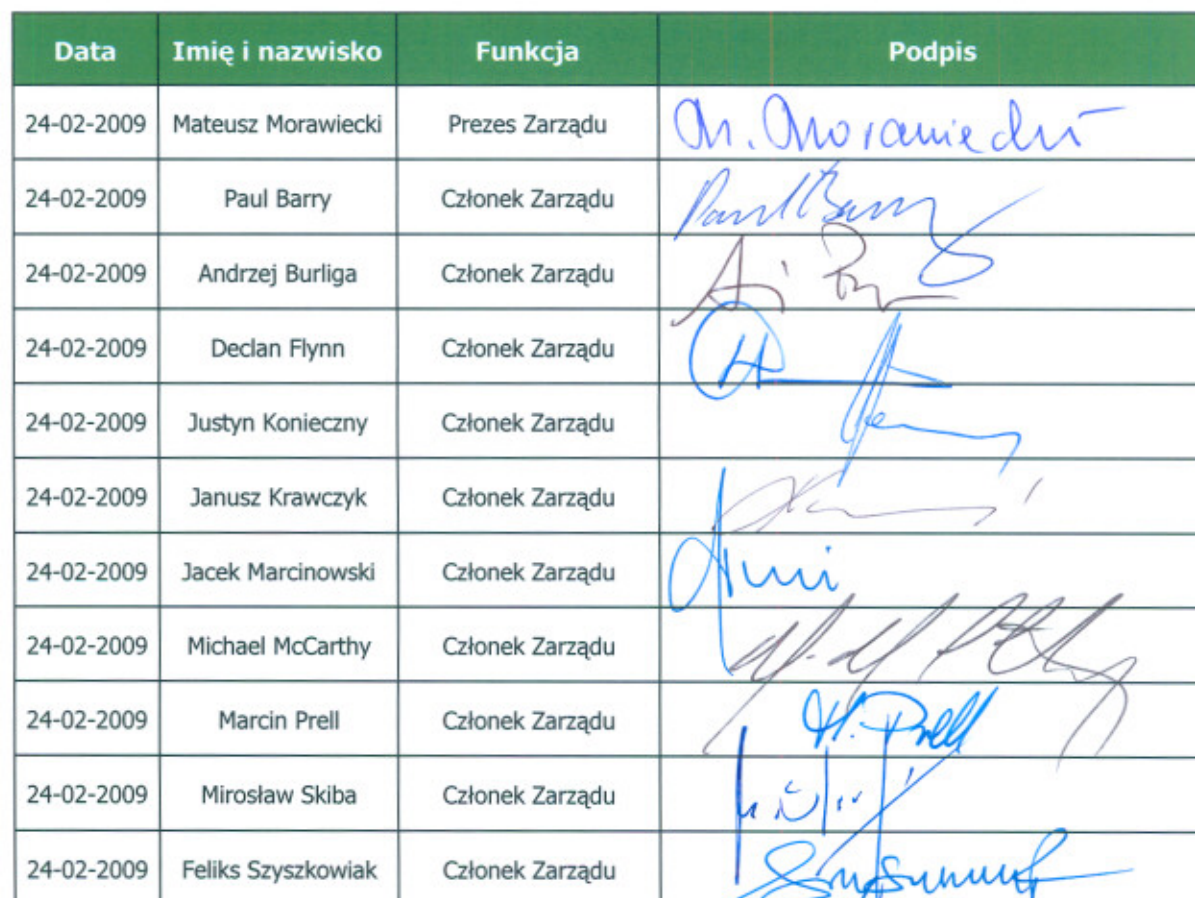 Data Imię i nazwisko Funkcja Podpis
24-02-2009 Mateusz Morawiecki Prezes Zarządu M. Morawiecki
24-02-2009 Paul Barry Członek Zarządu Paul Barry
24-02-2009 Andrzej Burliga Członek Zarządu
24-02-2009 Declan Flynn Członek Zarządu
24-02-2009 Justyn Konieczny Członek Zarządu
24-02-2009 Janusz Krawczyk Członek Zarządu
24-02-2009 Jacek Marcinowski Członek Zarządu
24-02-2009 Michael McCarthy Członek Zarządu
24-02-2009 Marcin Prell Członek Zarządu M. Prell
24-02-2009 Mirosław Skiba Członek Zarządu
24-02-2009 Feliks Szyszkowiak Członek Zarządu